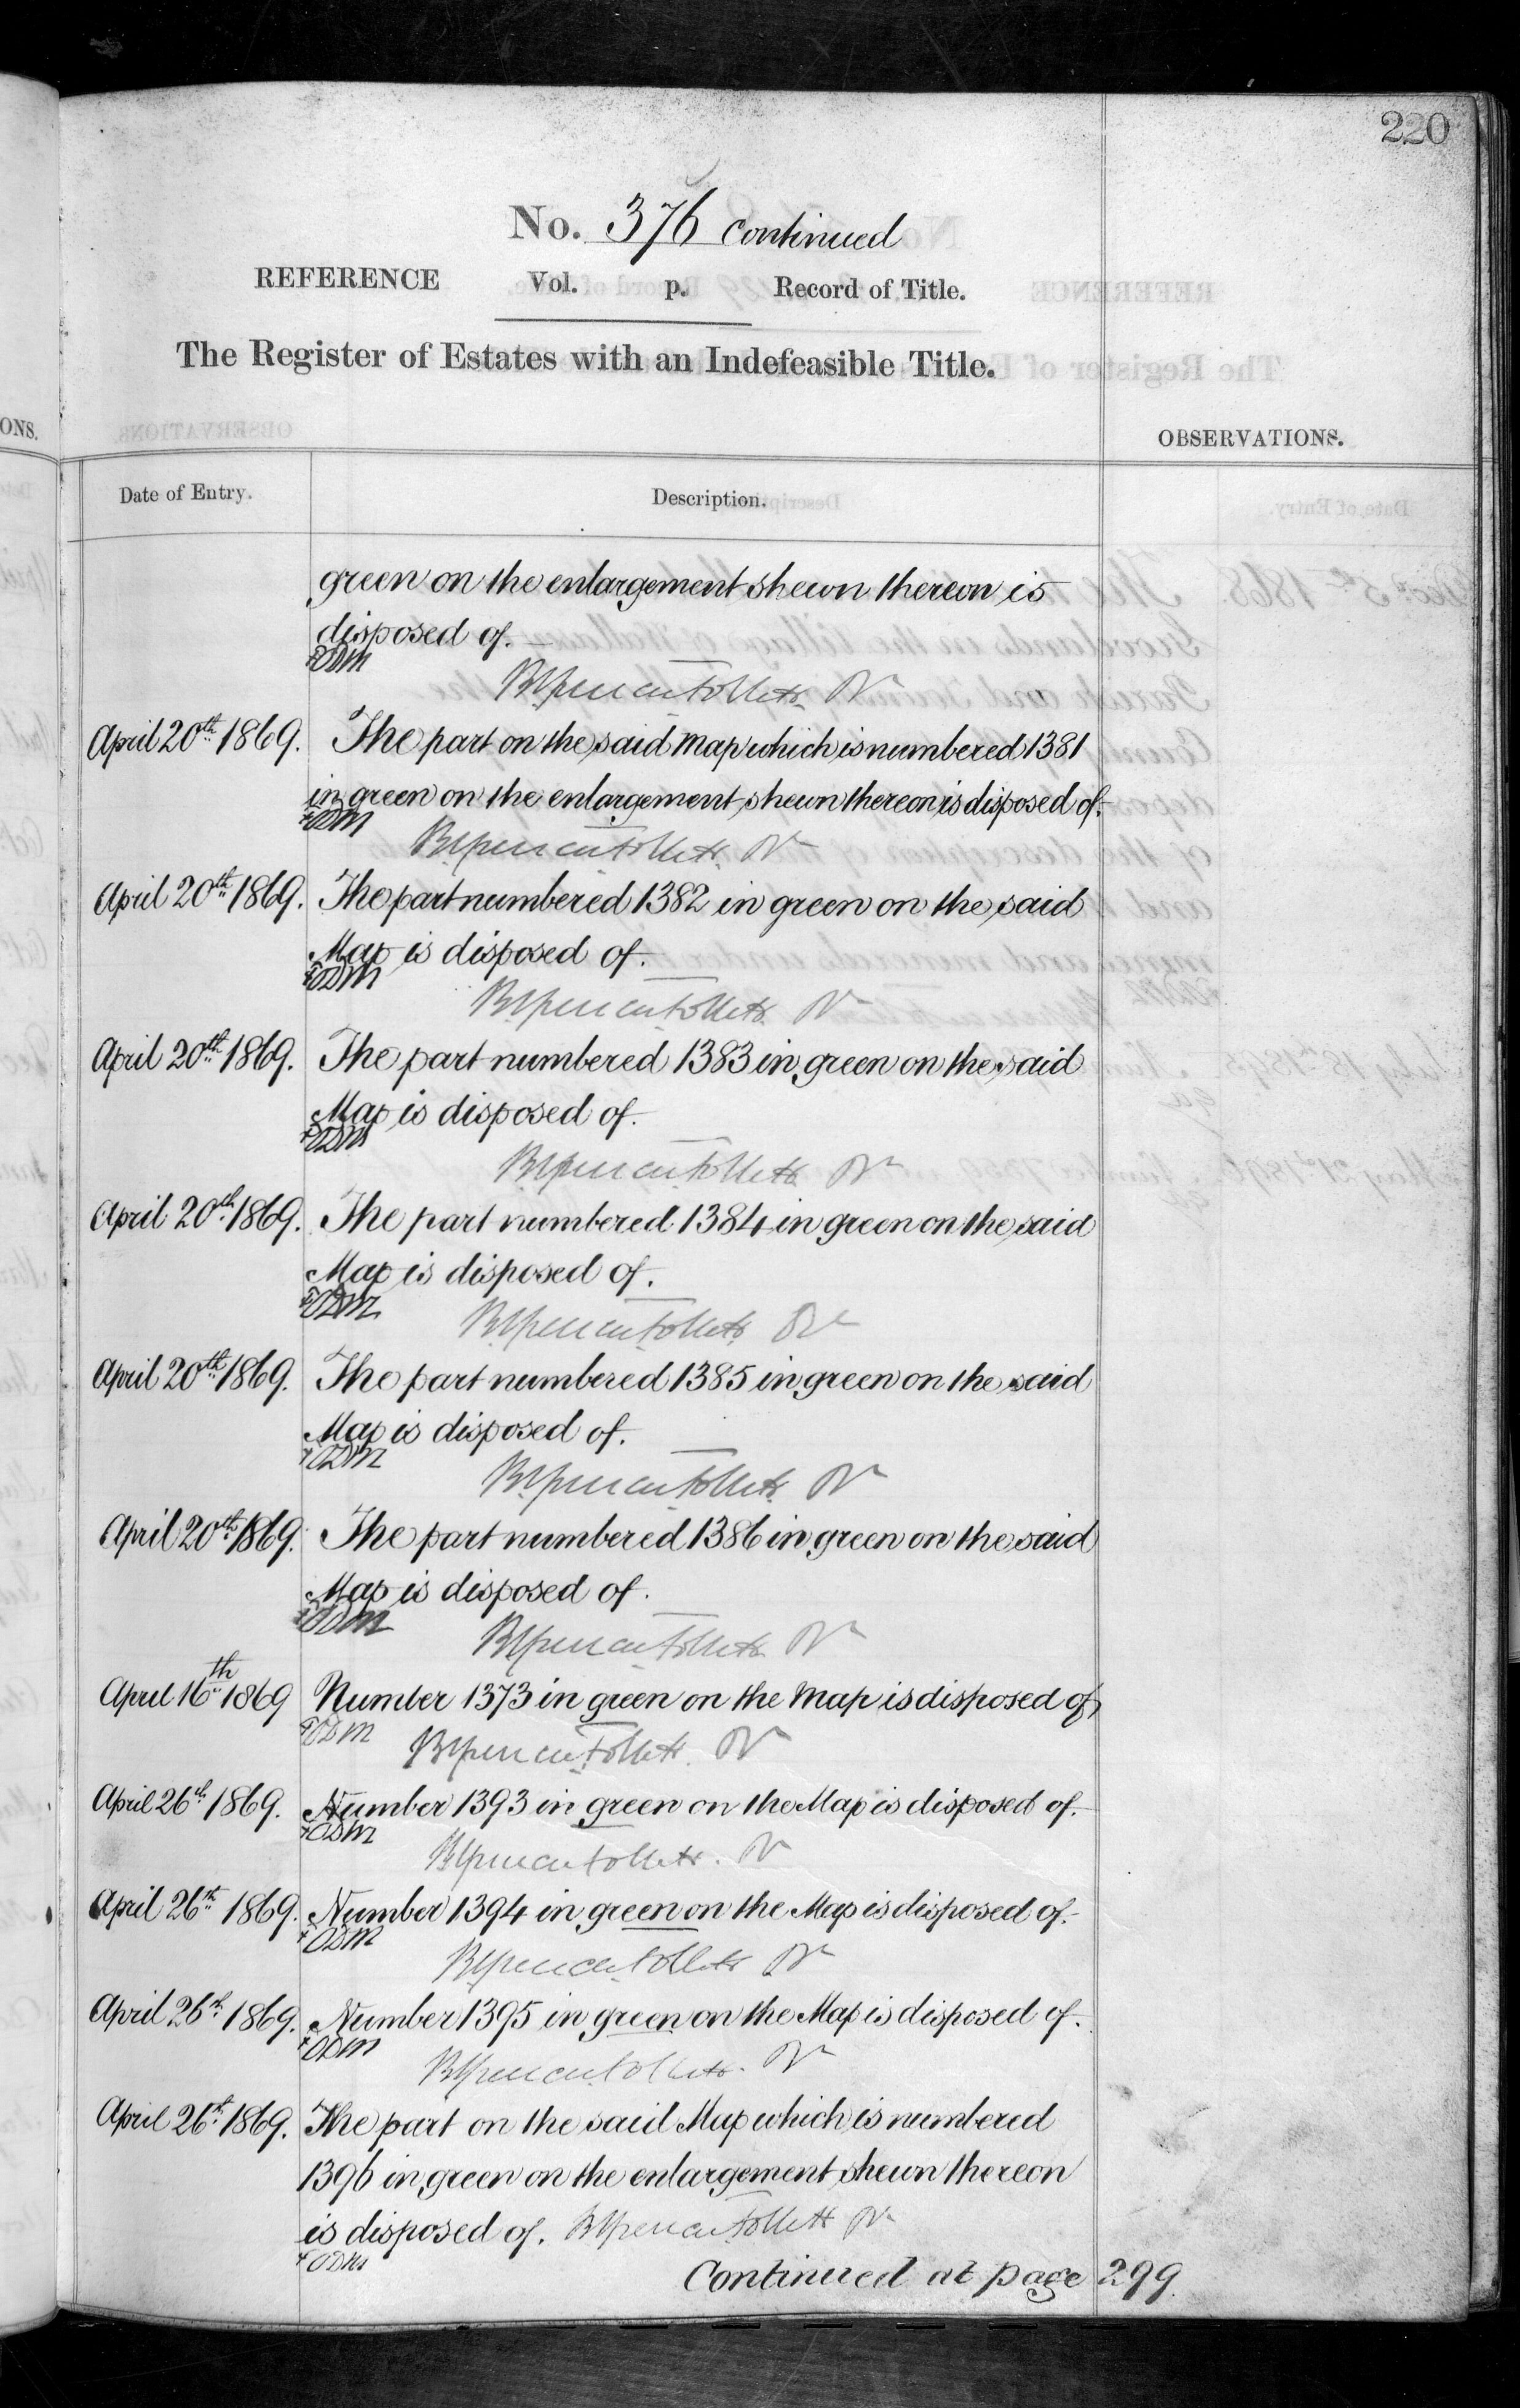 220
No. 376 continued
REFERENCE Vol. p. Record of Title.
The Register of Estates with an Indefeasible Title.
ONS.
OBSERVATIONS.
Date of Entry. Description.
green on the enlargement shewn thereon is
disposed of.
ODM
April 20th 1869. The part on the said Map which is numbered 1381
in green on the enlargement shewn thereon is disposed of.
ODM
April 20th 1869. The part numbered 1382 in green on the said
Map is disposed of.
ODM
April 20th 1869. The part numbered 1383 in green on the said
Map is disposed of.
ODM
April 20th 1869. The part numbered 1384 in green on the said
Map is disposed of.
ODM
April 20th 1869. The part numbered 1385 in green on the said
Map is disposed of.
ODM
April 20th 1869. The part numbered 1386 in green on the said
Map is disposed of.
ODM
April 16th 1869 Number 1373 in green on the Map is disposed of
ODM
April 26th 1869. Number 1393 in green on the Map is disposed of.
ODM
April 26th 1869. Number 1394 in green on the Map is disposed of.
ODM
April 26th 1869. Number 1395 in green on the Map is disposed of.
ODM
April 26th 1869. The part on the said Map which is numbered
1396 in green on the enlargement shewn thereon
is disposed of.
ODM
Continued at page 299.